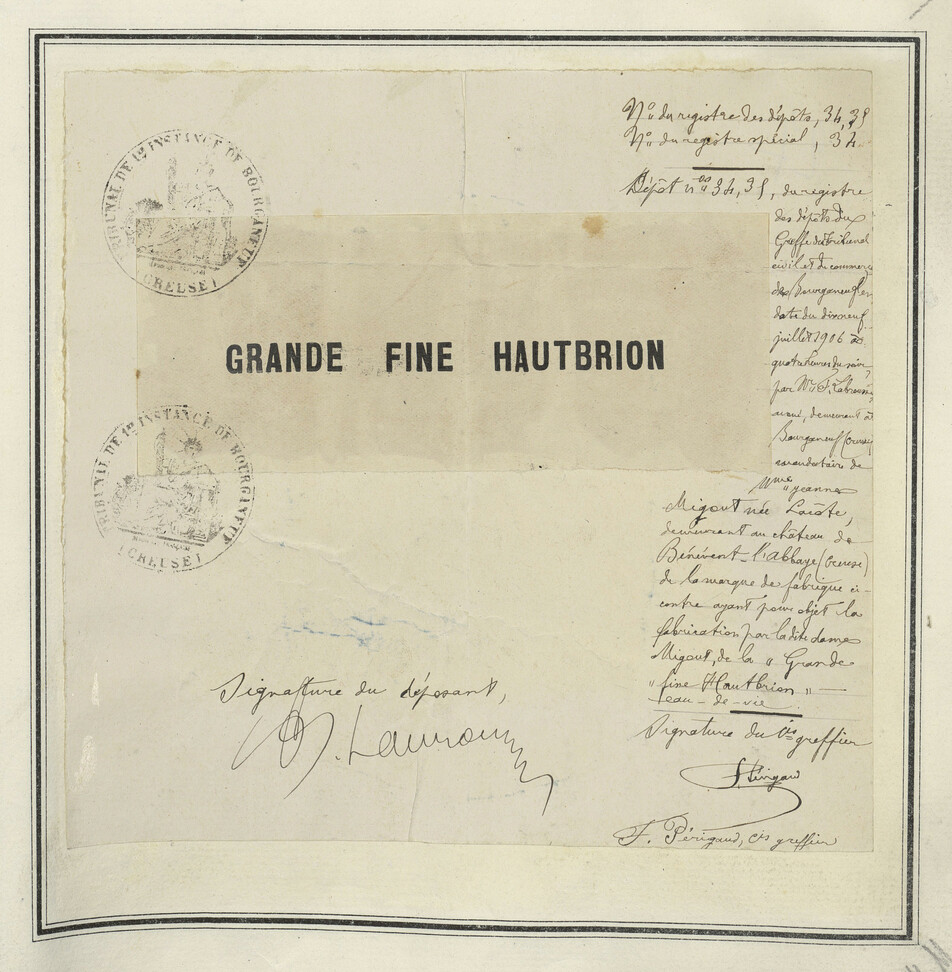 TRIBUNAL DE 1re INSTANCE DE BOURGANEUF
(CREUSE)
GRANDE FINE HAUTBRION
TRIBUNAL DE 1re INSTANCE DE BOURGANEUF
(CREUSE)
Signature du déposant,
No du registre des dépôts, 34, 35
No du registre spécial, 34
Dépôt nos 34, 35, du registre
des dépôts du
Greffe du tribunal
civil et de commerce
de Bourganeuf en
date du dixneuf
juillet 1906 à
quatre heures du soir,
par Mr F.
ainé, demeurant à
Bourganeuf (Creuse)
mandataire de
Mme Jeanne
Migout née Lacôte,
demeurant au château de
Bénévent-l'Abbaye (Creuse)
de la marque de fabrique ci-
contre ayant pour objet la
fabrication par la dite dame
Migout, de la "Grande
"fine Hautbrion"
eau-de-vie.
Signature du cis greffier
F. Périgaud
F. Périgaud, cis greffier